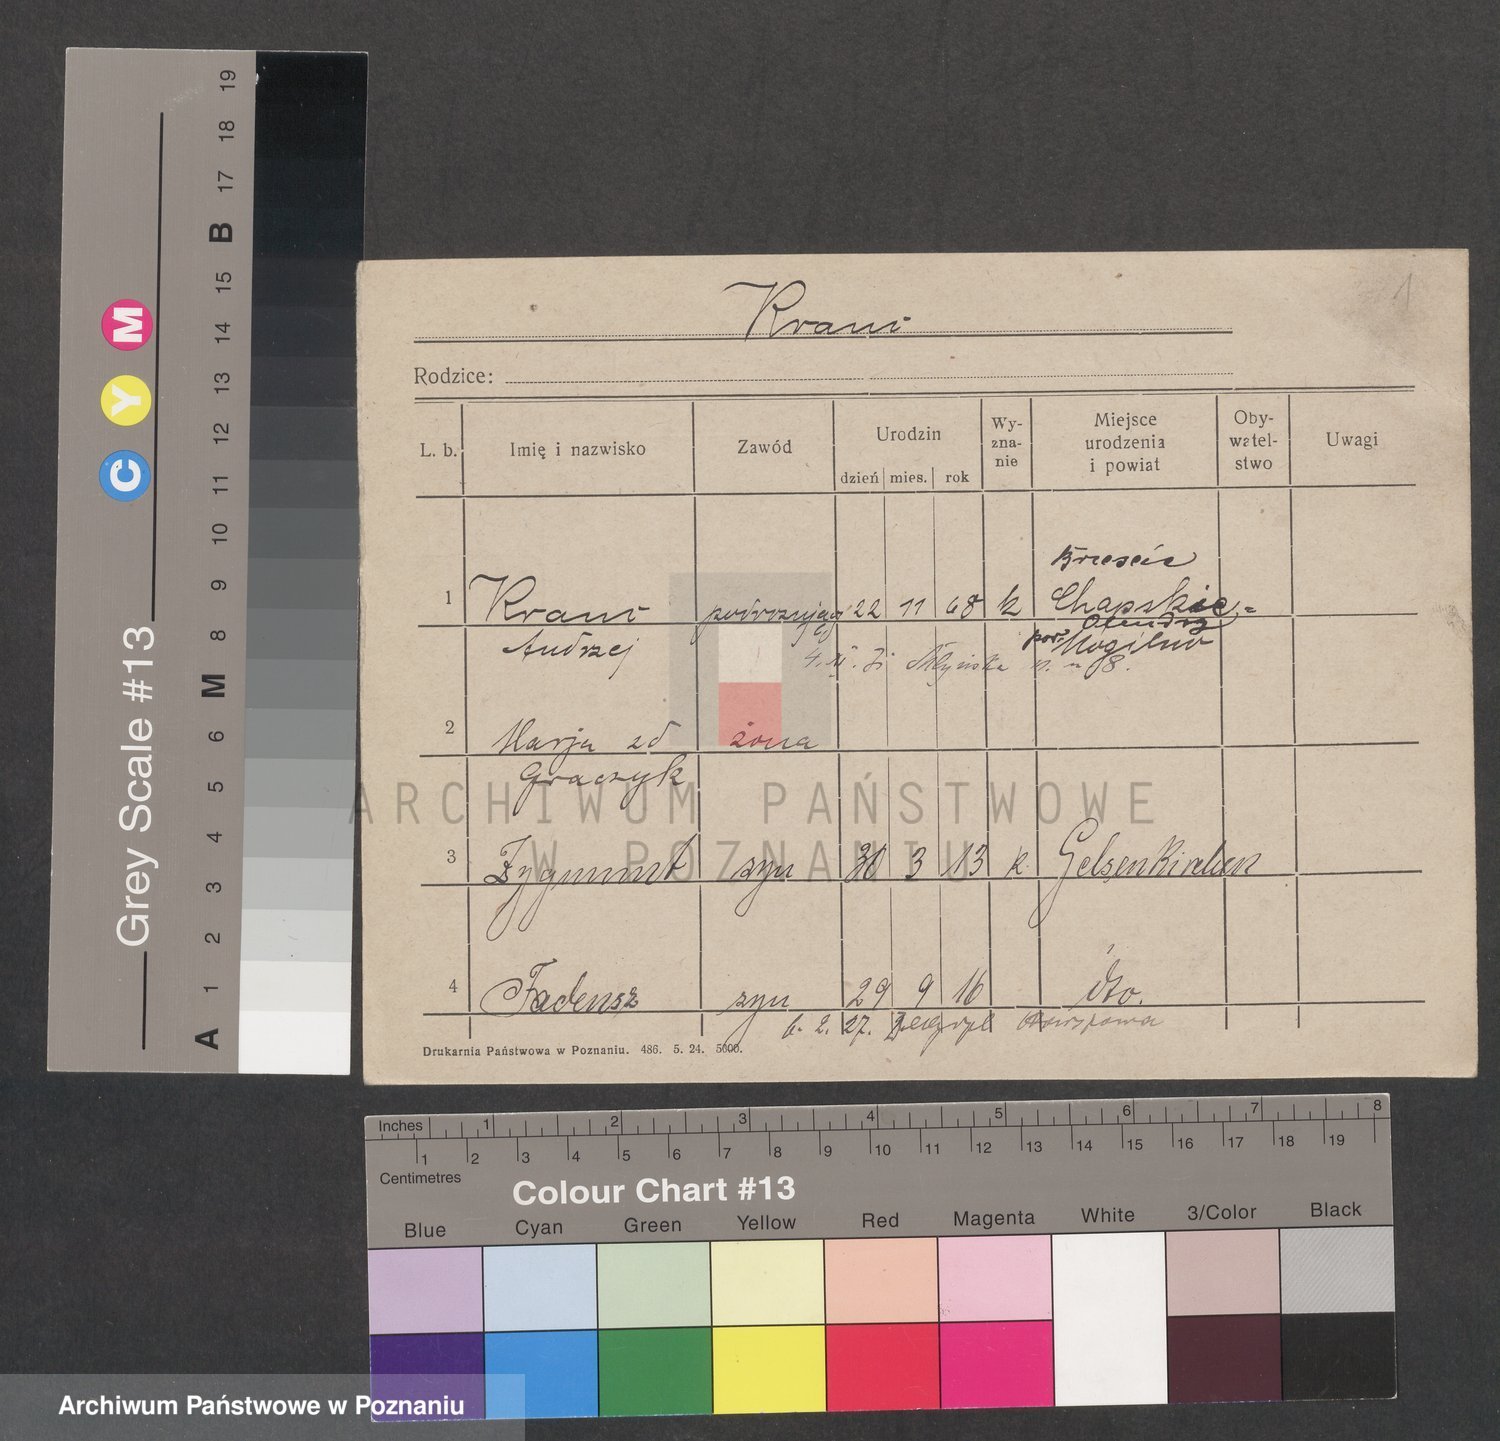 19
18
17
B
15
14
13
12
11
10
9
8
M
6
5
4
3
2
1
A
C Y M
Grey Scale #13
1
Rodzice:
L. b.
Imię i nazwisko
Zawód
Urodzin
dzień mies. rok
Wy-
zna-
nie
Miejsce
urodzenia
i powiat
Oby-
watel-
stwo
Uwagi
1 22 11 68 k
Chapskie
Andrzej
pow. Mogilno
Młyńska
2 Marja zd żona
Graczyk
3 Zygmunt syn 30 3 13 k Gelsenkirchen
4 Tadeusz syn 29 9 16 dto.
6. 2. 27.
Drukarnia Państwowa w Poznaniu. 486. 5. 24. 5000.
ARCHIWUM PAŃSTWOWE
W POZNANIU
Inches 1 2 3 4 5 6 7 8
1 2 3 4 5 6 7 8 9 10 11 12 13 14 15 16 17 18 19
Centimetres
Colour Chart #13
Blue Cyan Green Yellow Red Magenta White 3/Color Black
Archiwum Państwowe w Poznaniu